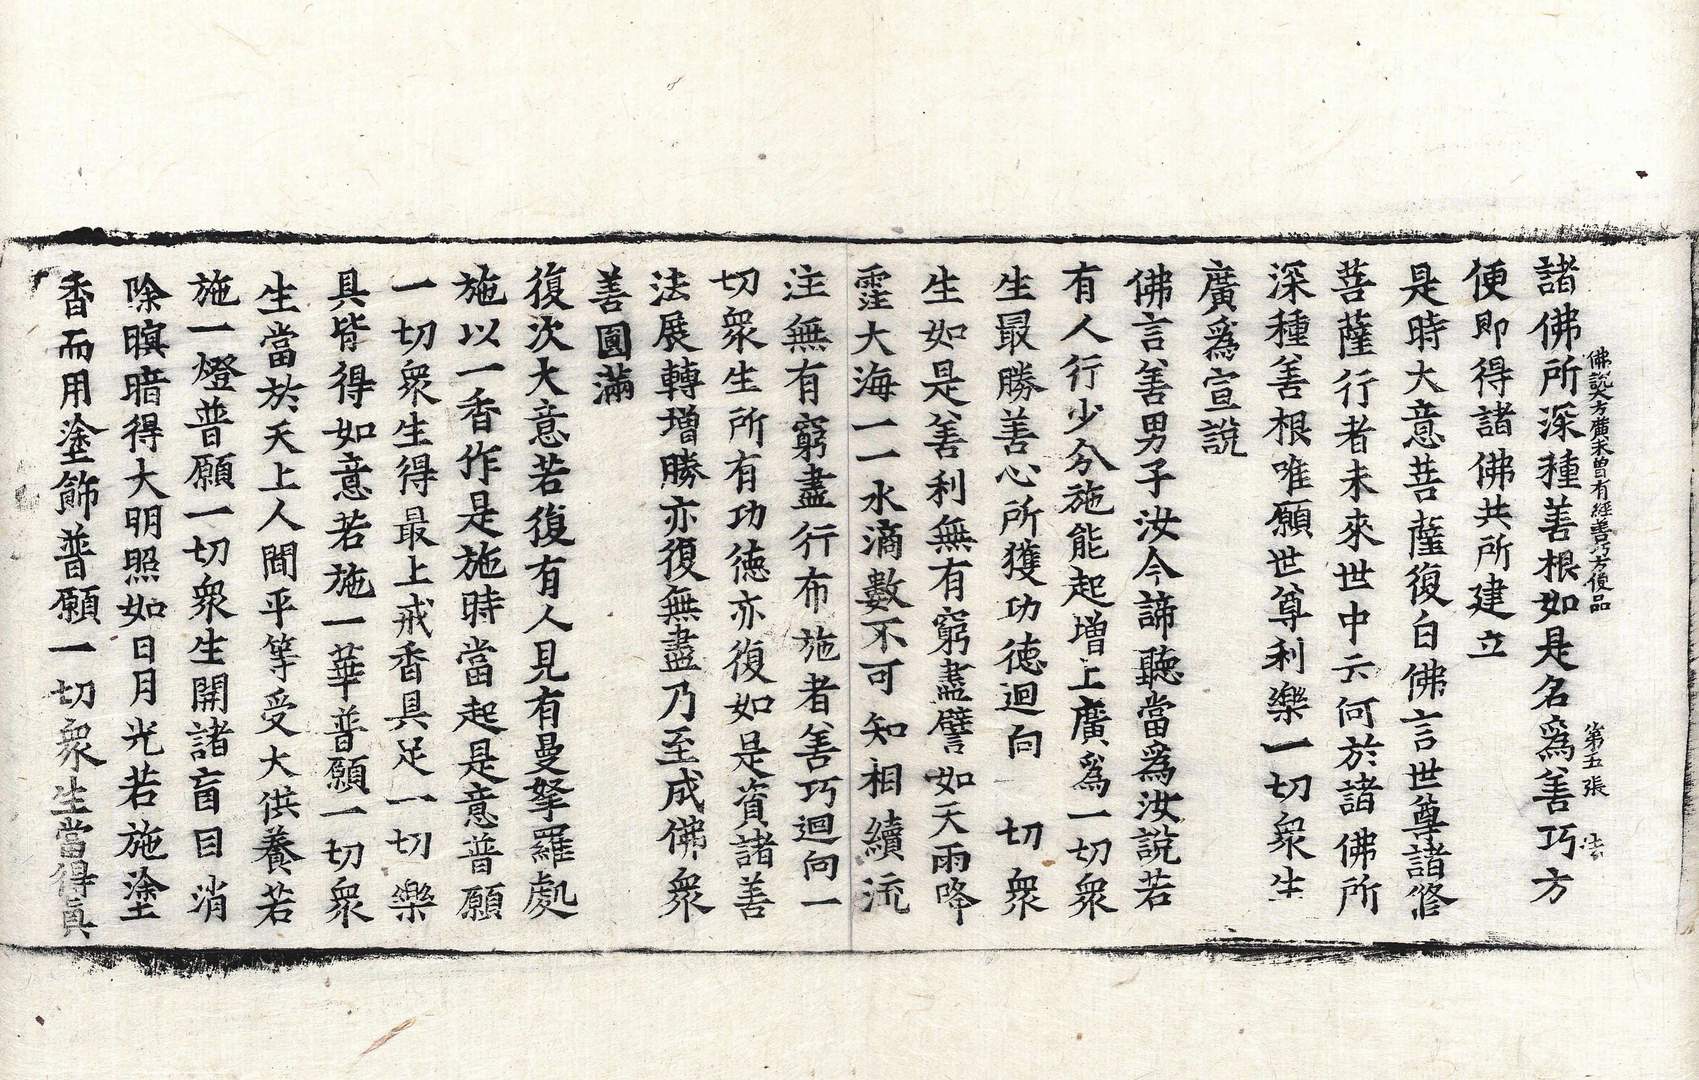 佛說大方廣未曾有經善巧方便品 第五張
諸佛所深種善根如是名爲善巧方
便即得諸佛共所建立
是時大意菩薩復白佛言世尊諸修
菩薩行者未來世中云何於諸佛所
深種善根唯願世尊利樂一切衆生
廣爲宣說
佛言善男子汝今諦聽當為汝說若
有人行少分施能起增上廣爲一切衆
生最勝善心所獲功德迴向 切衆
生如是善利無有窮盡譬如天雨降
霔大海一一水滴數不可知相續流
注無有窮盡行布施者善巧迴向一
切衆生所有功德亦復如是資諸善
法展轉增勝亦復無盡乃至成佛衆
善圓滿
復次大意若復有人見有曼拏羅處
施以一香作是施時當起是意普願
一切衆生得最上戒香具足一切樂
具皆得如意若施一華普願一切衆
生當於天上人間平等受大供養若
施一燈普願一切衆生開諸盲目消
除暝暗得大明照如日月光若施塗
香而用塗飾普願一切衆生當得眞